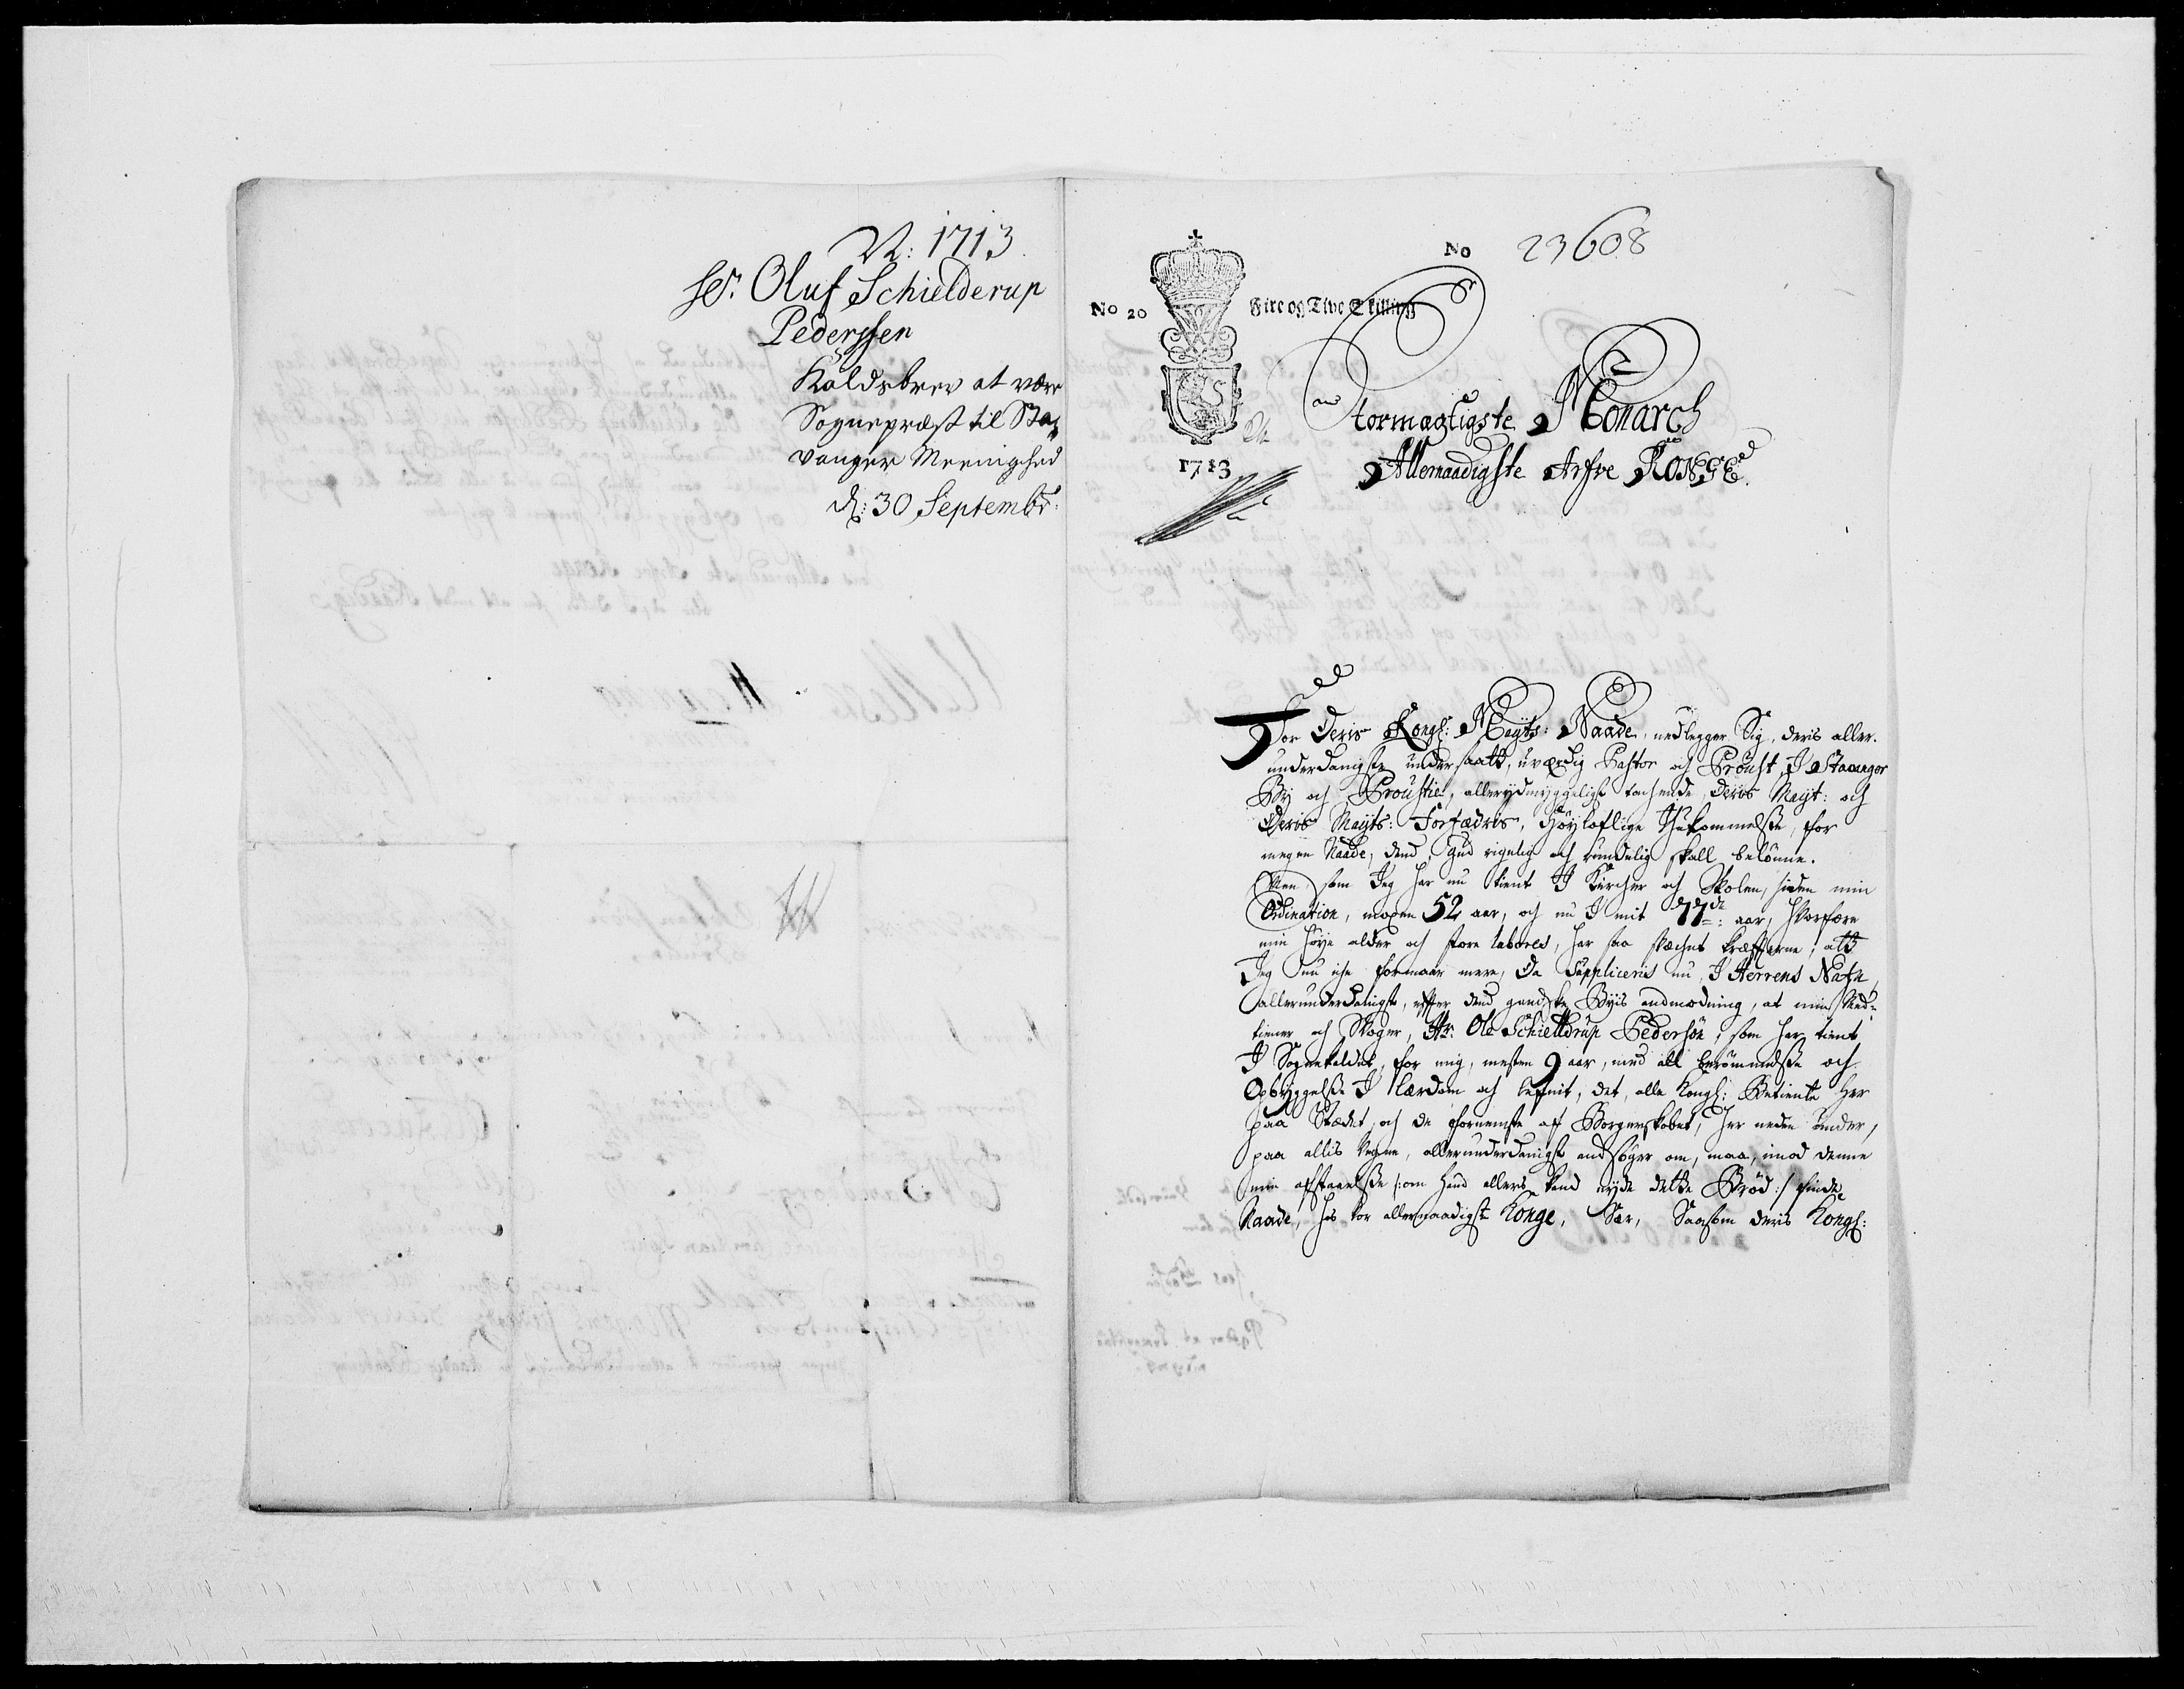 N: 1713.
Hr. Oluf Schielderup
Pederssen
Kaldsbrev at være
Sognepræst til Sta,
vanger Meenighed
d: 30 Septembr:
No 23608
No 20 Fire og Tive Skilling
1713
Stormagtigste Monarch
Allernaadigste Arfve KONGE.
For Deris Kongl: Mayts: Naade, nedlegger Sig, deris aller-
underdanigste undersaatt, uværdig Pastor och Proust, I Stavanger
By och Proustie, allerydmyggeligst tachende, Deris Mayt: och
Deris Mayts: Forfædris, Høyloflige Ihukommelsse, for
megen Naade, dend Gud rigelig och rundelig skall belønne.
Men som Jeg har nu tient I Kircher och Skolen, siden min
Ordination, moxen 52 aar, och nu I mit 77de: aar, hvorfore
min høye alder och store labores, har saa svæchet kræfterne, att
Jeg nu iche formaar mere, Da Suppliceris nu, I Herrens Nafn,
allerunderdanigst, efter dend gandske Byis anmodning, at min Med-
tiener och Svoger, Hr: Ole Schielldrup Pedersøn, som har tient
I Sognekaldet, for mig, mesten 9 aar, med all berømmelsse och
Opbyggelsse I Lærdom och Lefnit, det, alle Kongl: Betiente her
paa Stædet, och de fornemste af Borgerskabet, her neden under,
paa allis Vegne, allerunderdanigst andsøger om, maa, imod denne
min afstaaelsse /: om hand ellers kand nyde dette Brød :/ finde
Naade, hos vor allernaadigste Konge, Saasom deris Kongl: